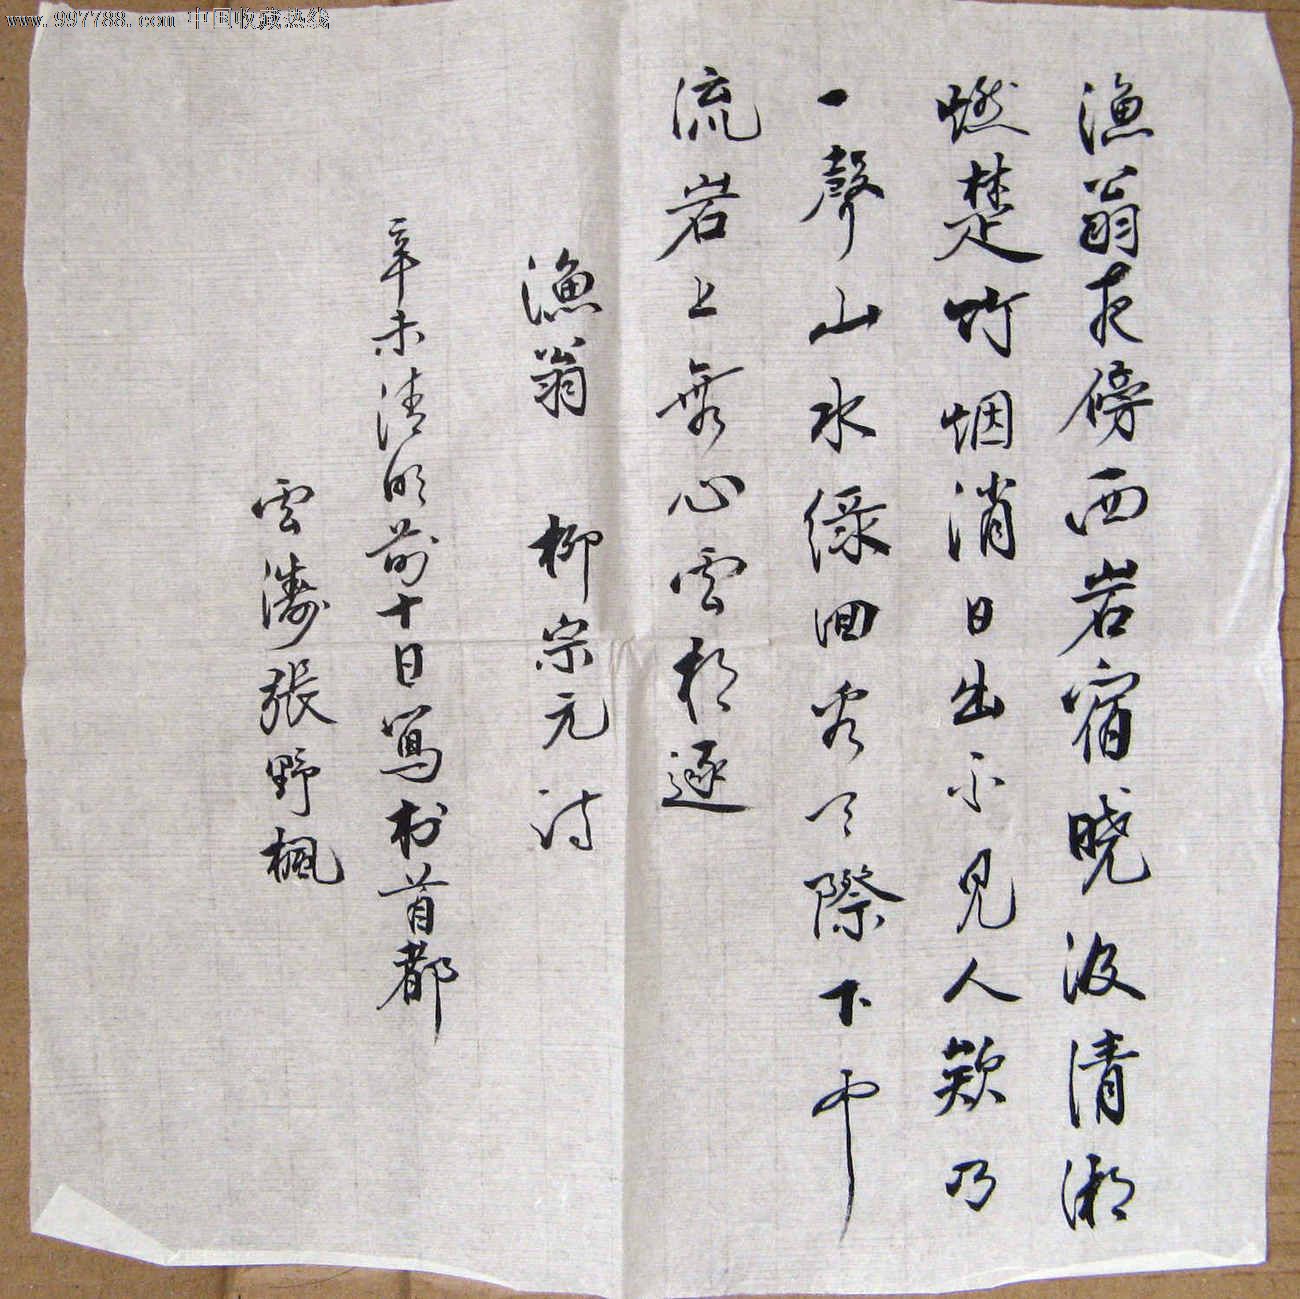 www.997788.com 中国收藏热线
漁翁夜傍西岩宿曉汲清湘
燃楚竹烟消日出不見人欸乃
一聲山水緑回看天際下中
流岩上無心雲相逐
漁翁 柳宗元詩
辛未清明前十日寫於首都
雲濤張野楓